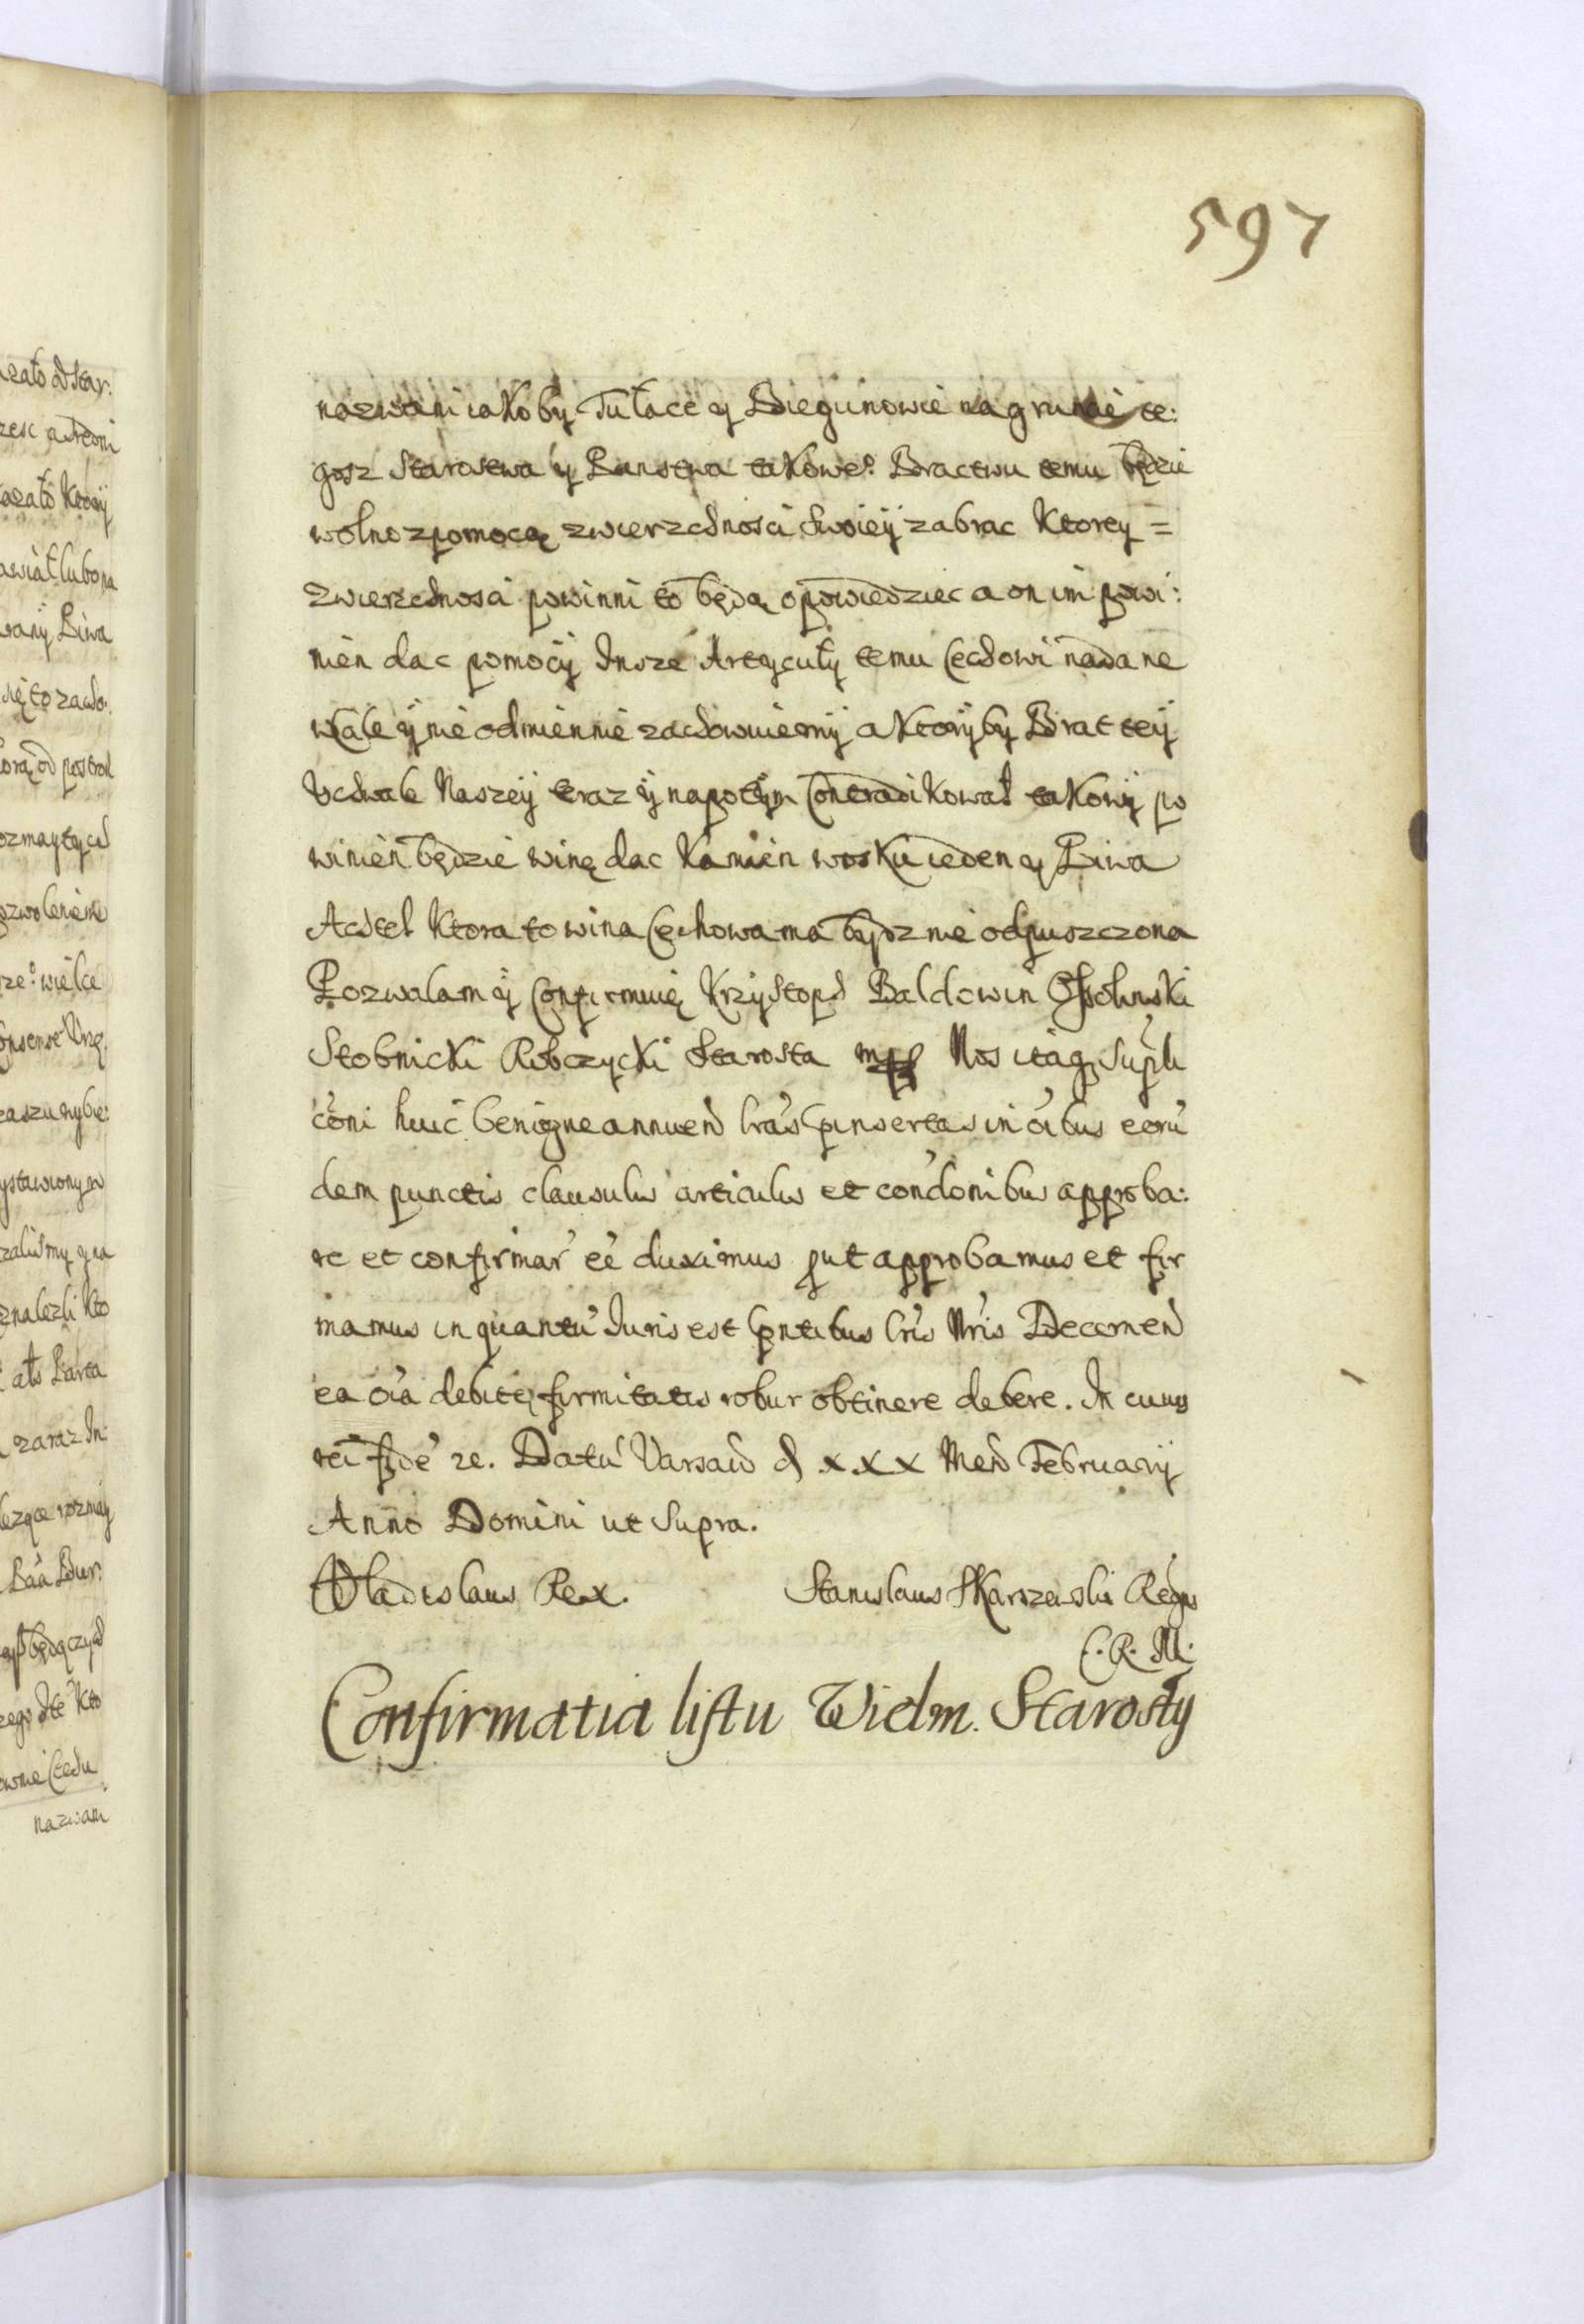 597
nazwani iakoby Tułace y Biegunowie na gruncie te:
gosz Starostwa y Panstwa takowe° Bractwu temu będzie
wolno zpomocą zwierzchnosci Swoieÿ zabrac Ktorey =
Zwierzchnosci powinni to będą opowiedziec a on im powi:
nien dac pomocÿ Insze Artycuły temu Cechowi nadane
wcale ÿ nie odmiennie zachowuiemÿ a Ktorÿby Brat teÿ
Uchwale Naszeÿ teraz ÿ napotÿm Contradikował takowÿ po
winien będzie winę dac Kamien wosku ieden y Piwa
Achtel Ktora to wina Cechowa ma bydz nie odpuszczona
Pozwalam ÿ Confirmuię Krzÿstoph Baldowin Ossolinski
Stobnicki Robczÿcki Starosta mpp Nos itaq; Supli
coni huic benigne annuen lras pinsertas in oibus eoru
dem punctis clausulis articulis et condonibus approba:
re et confirmar ee duximus put approbamus et fir
mamus in quantu Iuris est pntibus lris Nris Decernen
ea oia debitę firmitatis robur obtinere debere. In cuius
rei fide 2c. Datu Varsaw d XXX Men Februarij
Anno Domini ut Supra.
Vladislaus Rex. Stanislaus SKarszewski Regns
C. R. M.
Confirmatia listu Wielm. Starosty
azało od Star:
Piwa
się to zacho:
pozwoleniem
ze° wielce
ystawiony w
zaliśmy y na
znalezli Kto
zaraz In:
nazwani